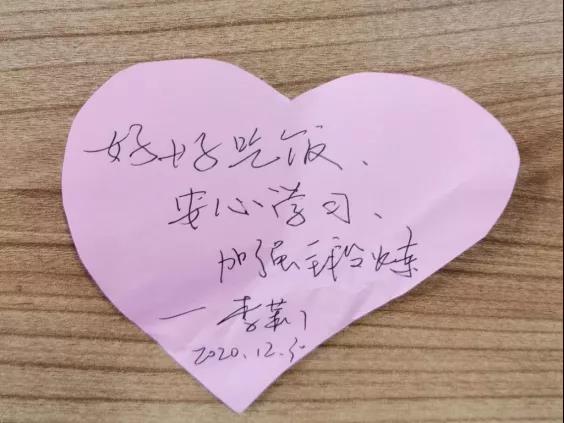 好好吃饭、
安心学习、
加强锻炼
— 李
2020.12.30